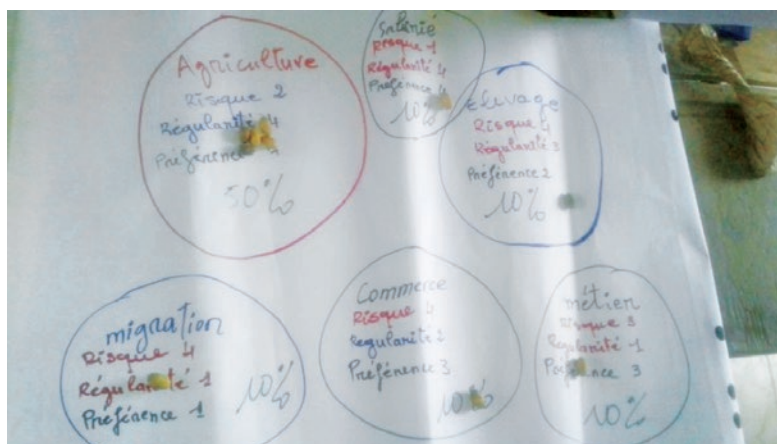 Agriculture
Risque 2
Régularité 4
Préférence
50%
Salarié
Risque 1
Régularité 4
Préférence 4
10%
Elevage
Risque 4
Régularité 3
Préférence 2
10%
migration
Risque 4
Régularité 1
Préférence 1
10%
Commerce
Risque 4
Régularité 2
Préférence 3
10%
métier
Risque 3
Régularité 1
Préférence 3
10%